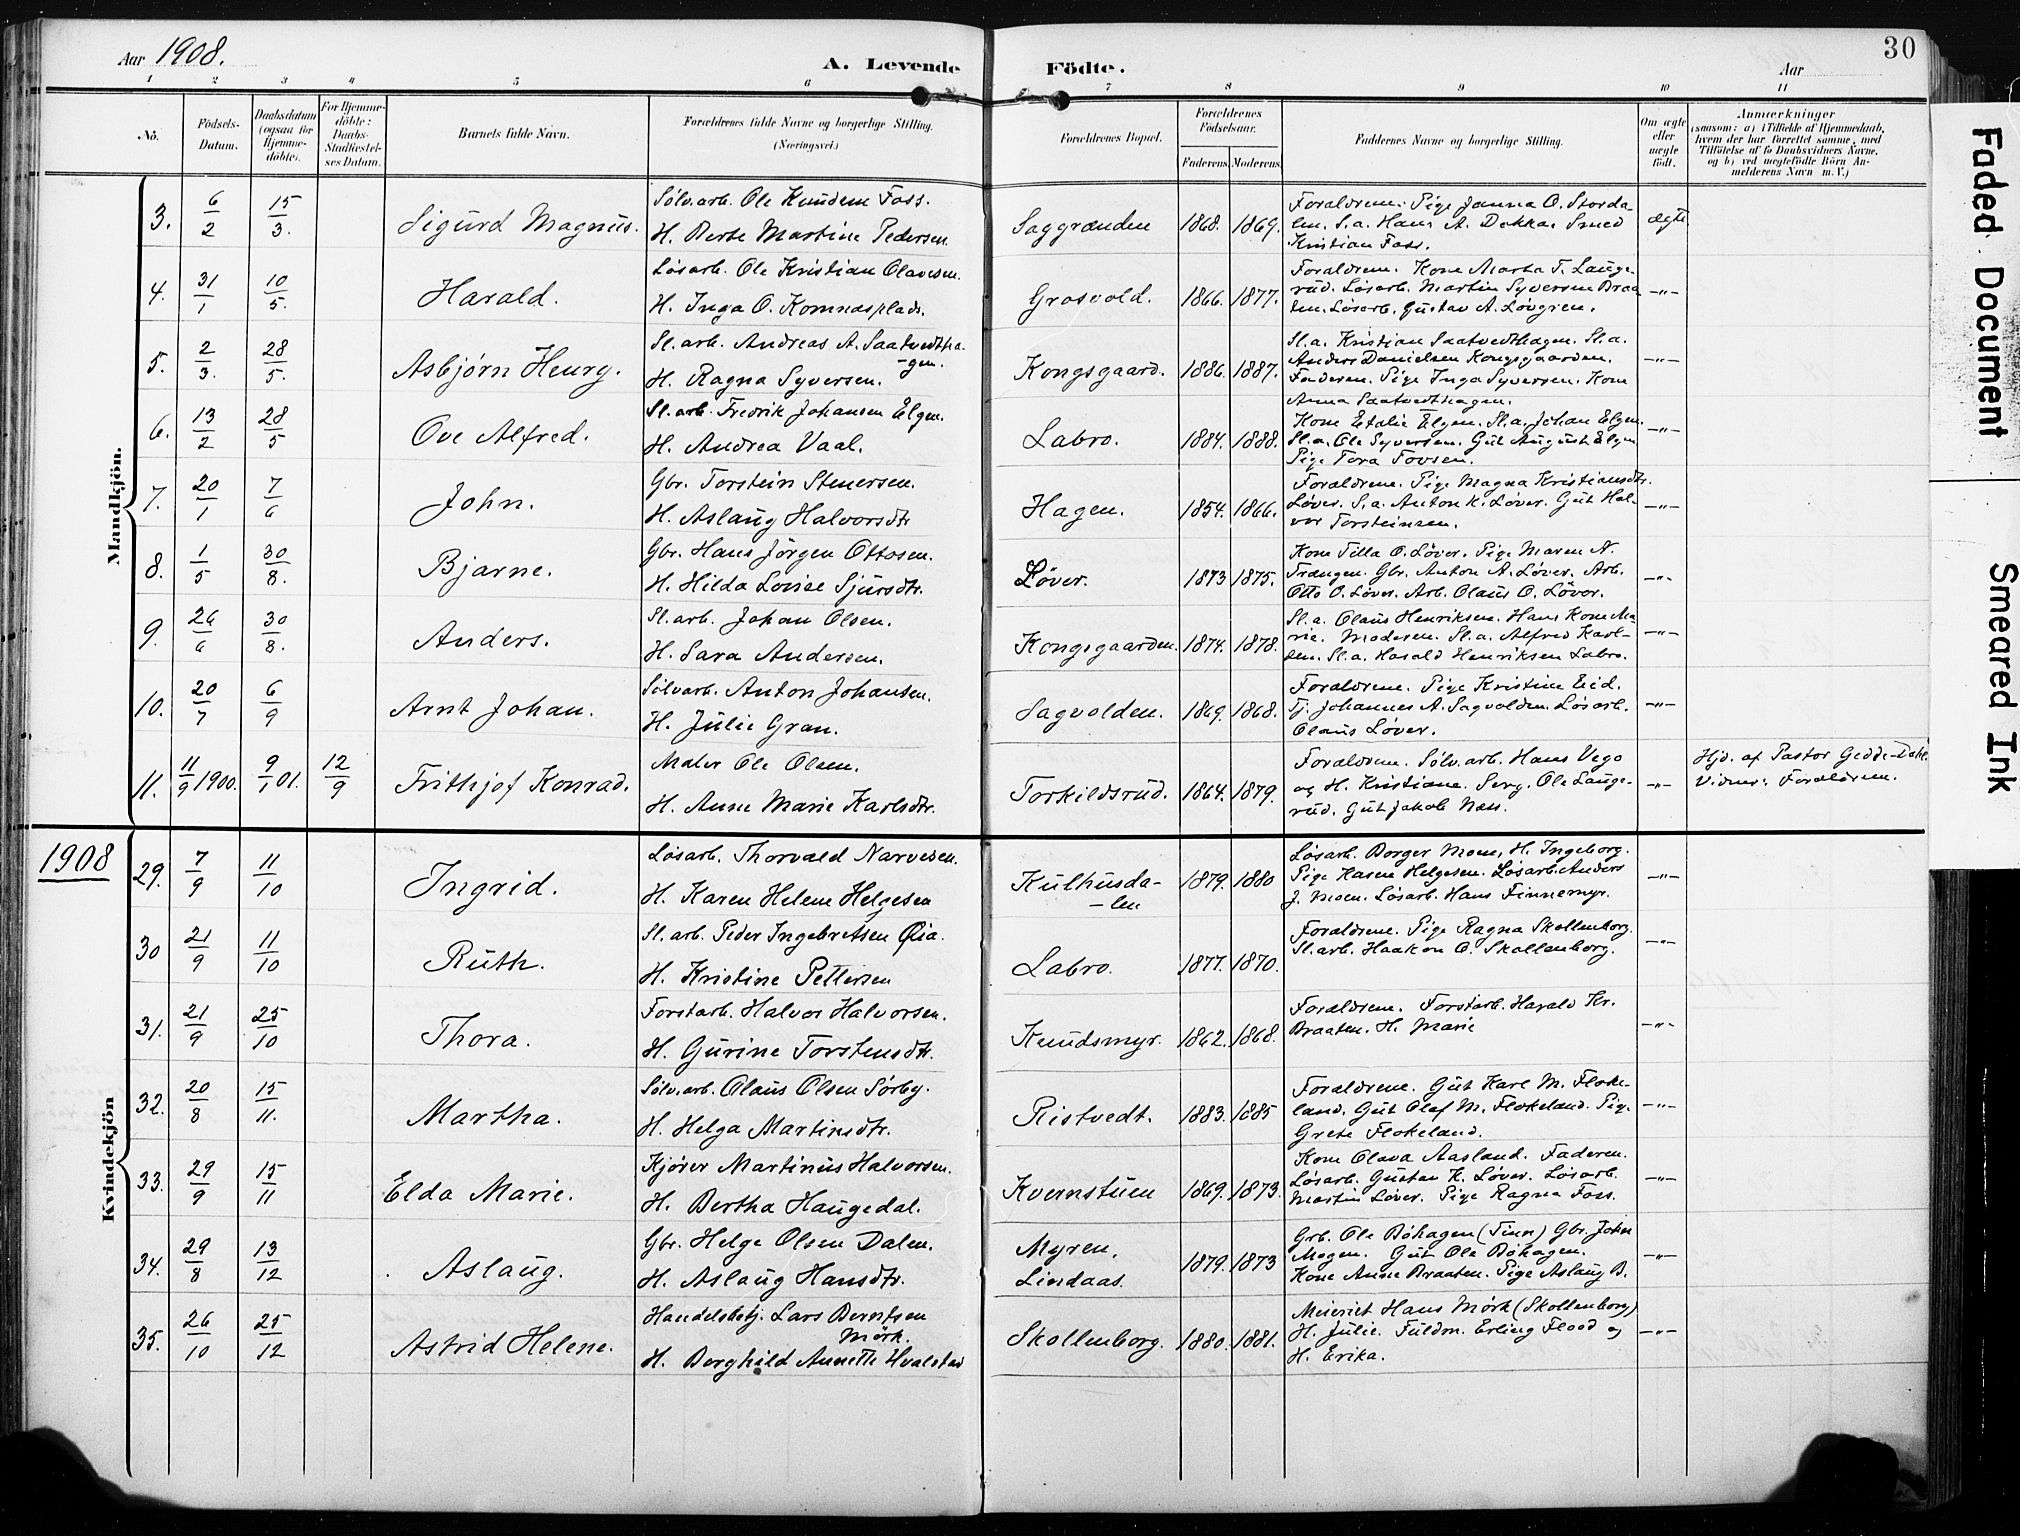 Aar 1908. A. Levende Födte. Aar 30
1 2 3 4 5 6 7 8 9 10 11
No. Födsels-Datum. Daabsdatum (ogsaa for Hjemme-döbte). For Hjemme-döbte: Daabs-Stadfæstel-ses Datum. Barnets fulde Navn. Forældrenes fulde Navne og borgerlige Stilling. (Næringsvei.) Forældrenes Bopæl. Forældrenes Födselsaar. Faderens. Moderens. Faddernes Navne og borgerlige Stilling. Om ægte eller uægte födt. Anmærkninger (saasom: a) i Tilfælde af Hjemmedaab, hvem der har forrettet samme, med Tilföielse af to Daabsvidners Navne, og b) ved uægtefödte Börn An-melderens Navn m. V.)
Mandkjön.
3. 6/2 15/3. Sigurd Magnus. Sølv.arb. Ole Knudsen Foss. Saggrænden 1868. 1869. Forældrene. Pige Janna O. Storda- ægte
H. Berte Martine Pedersen len. S.a. Hans A. Dokka. Smed
Kristian Foss.
4. 31/1 10/5. Harald. Løsarb. Ole Kristian Olavesen. Grosvold. 1866. 1877. Forældrene. Kone Marta T. Lauge- -"-
H. Inga O. Komnæsplads. rud. Løsarb. Martin Syversen Braa
ten. Løsarb. Gustav A. Løvgren.
5. 2/3. 28/5. Asbjørn Henry. Sl.arb. Andreas A. Saatvedtha-gen. Kongsgaard. 1886. 1887. Sl.a. Kristian Saatvedthagen. Sl.a. -"-
H. Ragna Syversen. Anders Danielsen Kongsgaarden.
Faderen. Pige Inga Syversen. Kone
Anna Saatvedthagen.
6. 13/2 28/5 Ove Alfred. Sl.arb. Fredrik Johansen Elgen. Labro. 1884. 1888. Kone Etalie Elgen. Sl.a. Johan Elgen. -"-
H. Andrea Vaal. Sl.a. Ole Syversen. Gut August Elgen
Pige Tora Fossen.
7. 20/1 7/6 John. Gbr. Torstein Stenersen. Hagen. 1854. 1866. Forældrene. Pige Magna Kristiansdtr. -"-
H. Aslaug Halvorsdtr Løver. S.a. Anton K. Løver. Gut Hal-
vor Torsteinsen.
8. 1/5 30/8. Bjarne. Gbr. Hans Jörgen Ottosen. Løver. 1873 1875. Kone Tilla O. Løver. Pige Maren N. -"-
H. Hilda Lovise Sjursdtr. Trængen. Gbr. Anton A. Løver. Arb.
Otto O. Løver. Arb. Olaus O. Löver.
9. 26/6 30/8. Anders. Sl.arb. Johan Olsen. Kongsgaarden. 1874. 1878. Sl.a. Olaus Henriksen. Hans Kone Ma- -"-
H. Sara Andersen. rie. Moderen. Sl.a. Alfred Karl-
sen. Sl.a. Harald Henriksen Labro.
10. 20/7 6/9 Arnt Johan. Sölvarb. Anton Johansen. Sagvolden. 1869. 1868. Forældrene. Pige Kristine Eid. -"-
H. Julie Gran. Tj. Johannes A. Sagvolden. Løsarb.
Olaus Løver.
11. 11/9 1900. 9/1 01. 12/9 Frithjof Konrad. Maler Ole Olsen. Torkildsrud. 1864. 1879. Forældrene. Sölv.arb. Hans Vego -"- Hjd. af Pastor Gedde-Dahl.
H. Anne Marie Karlsdtr. og H. Kristiane. Serg. Ole Lauge- Vidner: Forældrene.
rud. Gut Jakob Næss.
1908
Kvindekjön
29. 7/9 11/10 Ingrid. Løsarb. Thorvald Narvesen. Kulhusda- 1879. 1880 Løsarb. Borger Moen, H. Ingeborg. -"-
H. Karen Helene Helgesen -len Pige Hasene Helgesen. Løsarb. Anders
J. Moen. Løsarb. Hans Finnemyr.
30 21/9 11/10 Ruth. Sl.arb. Peder Ingebretsen Øia. Labro. 1877. 1870. Forældrene. Pige Ragna Skollenborg. -"-
H. Kristine Pettersen Sl.arb. Haakon O. Skollenborg.
31. 21/9 25/10 Thora. Forstarb. Halvor Halvorsen. Knudsmyr. 1862. 1868. Forældrene. Forstarb. Harald Kr. -"-
H. Gurine Torstensdtr. Braaten. H. Marie
32. 20/8 15/11. Martha. Sølv.arb. Olaus Olsen Sörby. Ristvedt. 1883. 1885 Forældrene. Gut Karl M. Floke- -"-
H. Helga Martinsdtr. land. Gut Olaf M. Flokeland. Pig.
Grete Flokeland.
33. 29/9 15/11 Elda Marie. Kjører Martinus Halvorsen. Kvernstuen 1869. 1873. Kone Olava Aasland. Faderen. -"-
H. Bertha Haugedal. Løsarb. Gustav K. Løver. Løsarb.
Martin Løver. Pige Ragna Foss.
34. 29/8 13/12 Aslaug. Gbr. Helge Olsen Dalen. Myren, 1879. 1873 Grb. Ole Böhagen (Tinn) Gbr. John -"-
H. Aslaug Hansdtr. Lindaas. Mogen. Gut Ole Böhagen.
Kone Anne Braaten. Pige Aslaug B.
35. 26/10 25/12 Astrid Helene. Handelsbetj. Lars Berntsen Mörk. Skollenborg. 1880. 1881. Meieriet Hans Mörk (Skollenborg) -"-
H. Borghild Annette Hvalstad H. Julie. Fuldm. Erling Flood og
H. Erika.
Faded Document
Smeared Ink